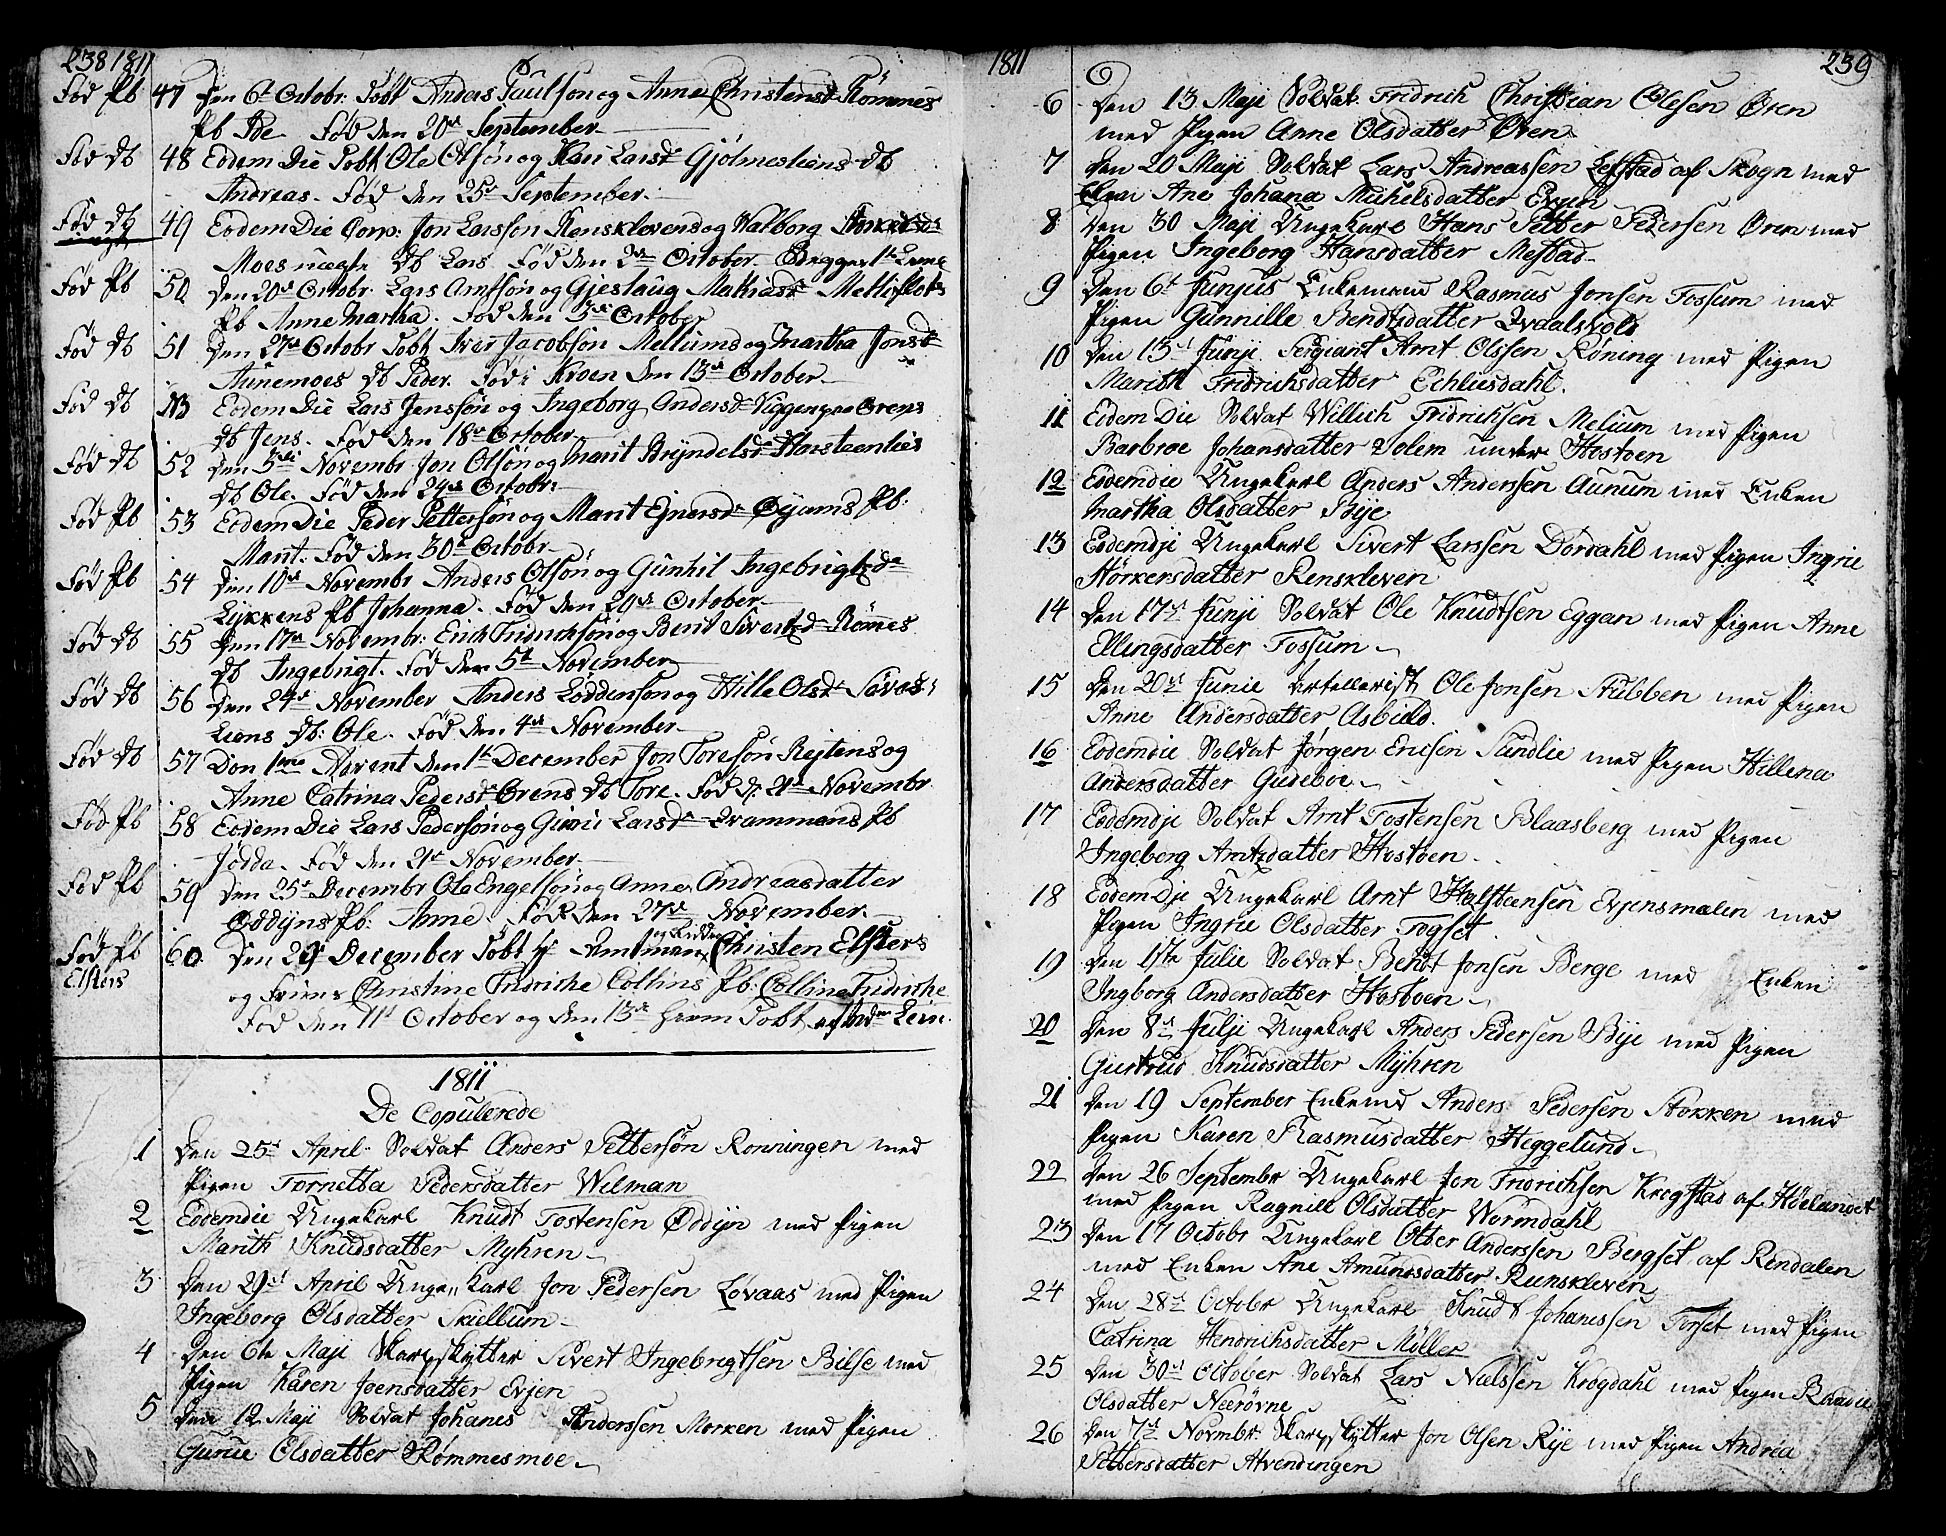 238 1811
Fød Pb 47 Den 6t Octobr: Døbt Anders Paulsøn og Anne Christensd Rømmes
Pb Ide. Fød den 20de September.
Fød Db 48 Eodem Die Døbt Ole Olsøn og Kari Larsd Gjølmesliens Db
Andreas. Fød den 25d September.
Fød Db uægte 49 Eodem Die Corp: Jon Larssøn Rensklevens og Walborg
Moes uægte Db Lars Fød den 2de October. Begges 1te Leier
Fød Pb 50 Den 20de Octobr. Lars Arntsøn og Gjeslaug Mathiasd
Pb Anne Martha. Fød den 3de October
Fød Db 51 Den 27de Octobr Døbt Iver Jacobsøn Mellums og Martha Jonsd
Aunemoes Db Peder. Fød i Kroen den 13de October
Fød Db NB Eodem Die Lars Jenssøn og Ingeborg Andersd Viggen paa Ørens
Db Jens. Fød den 18de October
Fød Db 52 Den 3die Novembr Jon Olsøn og Marit Bryndelsd
Db Ole. Fød den 24de Octobr:
Fød Pb 53 Eodem Die Peder Pettersøn og Marit Ejnersd Øyums Pb.
Marit. Fød den 30te Octobr
Fød Pb 54 Den 10de Novembr Anders Olsøn og Gunhil Ingebrigtsd
Lykkens Pb Johanna. Fød den 20de October
Fød Db 55 Den 17de Novembr: Erich Fridrichsøn og Berit Sivertsd Rømes
Db Ingebrigt. Fød den 5te November
Fød Db 56 Den 24de November Anders Loddensøn og Hille Olsd
Liens Db: Ole. Fød den 4de November.
Fød Db 57 Den 1me Advent den 1te December Jon Toresøn Rejtens og
Anne Catrina Pedersd Ørens Db Tore. Fød d. 21de Novembr
Fød Pb 58 Eodem Die Lars Pedersøn og Gunni Larsd Qvammens Pb
Jødda. Fød den 21de November.
Fød Pb 59 Den 25de Decembr Ole Engelsøn og Anne Andreasdatter
Oddyns Pb: Anne. Fød den 27de November.
og Ridder
Fød Pb 60. Den 29 December Døbt Hr Amtmand Christen Elsters
Elsters
og Frues Christine Fridriche Collins Pb: Collina Fridriche
Fød den 11t October og den 13de hiem Døbt af
1811
De Copulerede
1 Den 25de April Soldat Anders Pettersøn Ronningen med
Pigen Tornetta Pedersdatter Wilman
2 Eodemdie Ungekarl Knudt Tostensen Oddyn med Pigen
Marith Knudsdatter Myhren
3 Den 29de April Unge„karl Jon Pedersen Løvaas med Pigen
Ingeborg Olsdatter Skielbum
4 Den 6te Maji Skarpskytter Sivert Ingebrigtsen Bilse med
Pigen Karen Joensdatter Evjen
5 Den 12 Maji Soldat Johanes Anderssen Morken med Pigen
Gunie Olsdatter Rømmesmoe
1811 239
6 Den 13 Maji Soldat Fridrich Christian Olesen Øren
med Pigen Anne Olsdatter Øren
7 Den 20 Maji Soldat Lars Andreassen Lefstad af Skogn med
Ane Johana Michelsdatter Evjen
8 Den 30 Maji Ungekarl Hans Petter Pedersen Øren med
Pigen Ingeborg Hansdatter Mestad
9 Den 6t Junjus Enkemand Rasmus Jonsen Fossum med
Pigen Gunnille Bendtzdatter Qvaalsvold
10 Den 13de Junji Sergiant Arnt Olssen Røning med Pigen
Marith Fridrichsdatter Echliesdahl.
11 Eodem Die Soldat Willich Fridrichsen Melium med Pigen
Barbroe Johansdatter Solem under Hostoen
12 Eodemdie Ungekarl Anders Andersen Aunum med Enken
Martha Olsdatter Bije
13 Eodemdji Ungekarl Sivert Larssen Dordahl med Pigen Ingrie
Størkersdatter Renskleven
14 Den 17de Junji Soldat Ole Knudtsen Eggan med Pigen Anne
Ellingsdatter Fossum
15 Den 20de Junie Artellerist Ole Jonsen Stubben med Pigen
Anne Andersdatter Asbiold.
16 Eodemdie Soldat Jørgen Ericsen Sundlie med Pigen Hillena
Andersdatter Gudeboe
17 Eodemdji Soldat Arnt Tostensen Blaasberg med Pigen
Ingeborg Arntzdatter Hostoen
18 Eodem Dje Ungekarl Arnt Halstensen Evjensmalen med
Pigen Ingrie Olsdatter Fogset
19 Den 17te Julie Soldat Bendt Jonsen Berge med Enken
Ingborg Andersdatter Hostoen
20 Den 8de Julji Ungekarl Anders Pedersen Bije med Pigen
Giertrud Knudsdatter Myhren
21 Den 19 September Enkemd Anders Pedersen Stokken med
Pigen Karen Rasmusdatter Heggelund
22 Den 26 Septembr Ungekarl Jon Fridrichsen Krogstad af Høelandet
med Pigen Ragnill Olsdatter Wormdahl
23 Den 17 Octobr Ungekarl Otter Anderssen Bergset af Rendalen
med Enken Ane Amundsdatter Renskleven
24 Den 28de Octobr Ungekarl Knudt Johanessen Forset med Pigen
Catrina Hendrichsdatter Møller
25 Den 30de October Soldat Lars Nielssen Krogdahl med Pigen Randie
Olsdatter Neerøvne
26 Den 7de Novmbr: Skarpskytter Jon Olsen Rye med Pigen Andrea
Pettersdatter Hvendingen